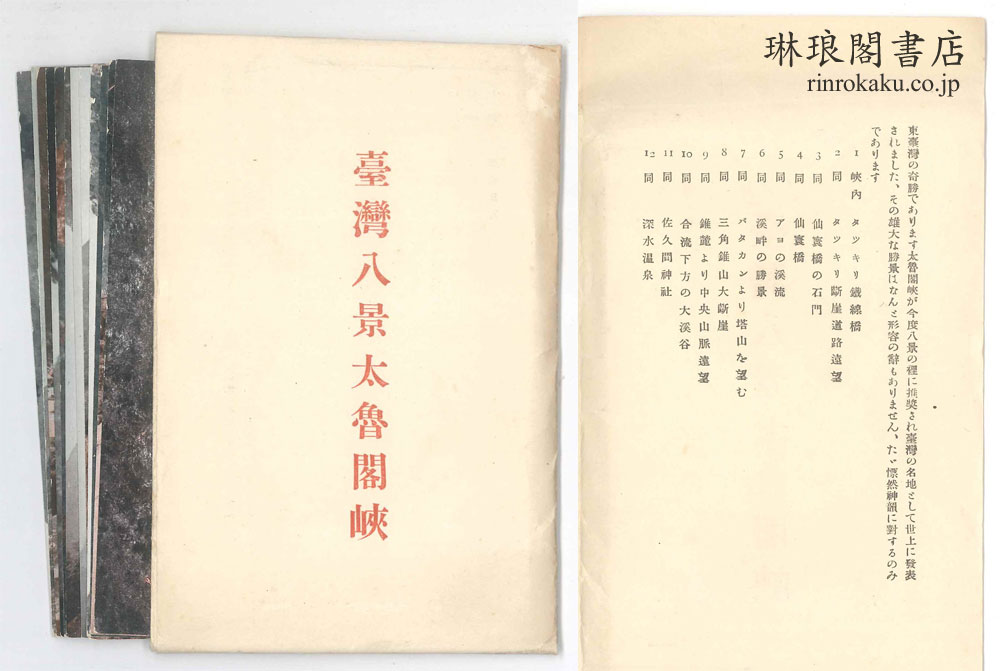 臺灣八景太魯閣峽
琳琅閣書店
rinrokaku.co.jp
東臺灣の奇勝であります太魯閣峽が今度八景の裡に推奬され臺灣の名地として世上に發表
されました、その雄大な勝景はなんと形容の辭もありません、たゞ慄然神韻に對するのみ
であります
1 峽內 タツキリ鐵線橋
2 同 タツキリ斷崖道路遠望
3 同 仙寰橋の石門
4 同 仙寰橋
5 同 アヨの溪流
6 同 溪畔の勝景
7 同 バタカンより塔山を望む
8 同 三角錐山大斷崖
9 同 錐麓より中央山脈遠望
10 同 合流下方の大溪谷
11 同 佐久間神社
12 同 深水溫泉